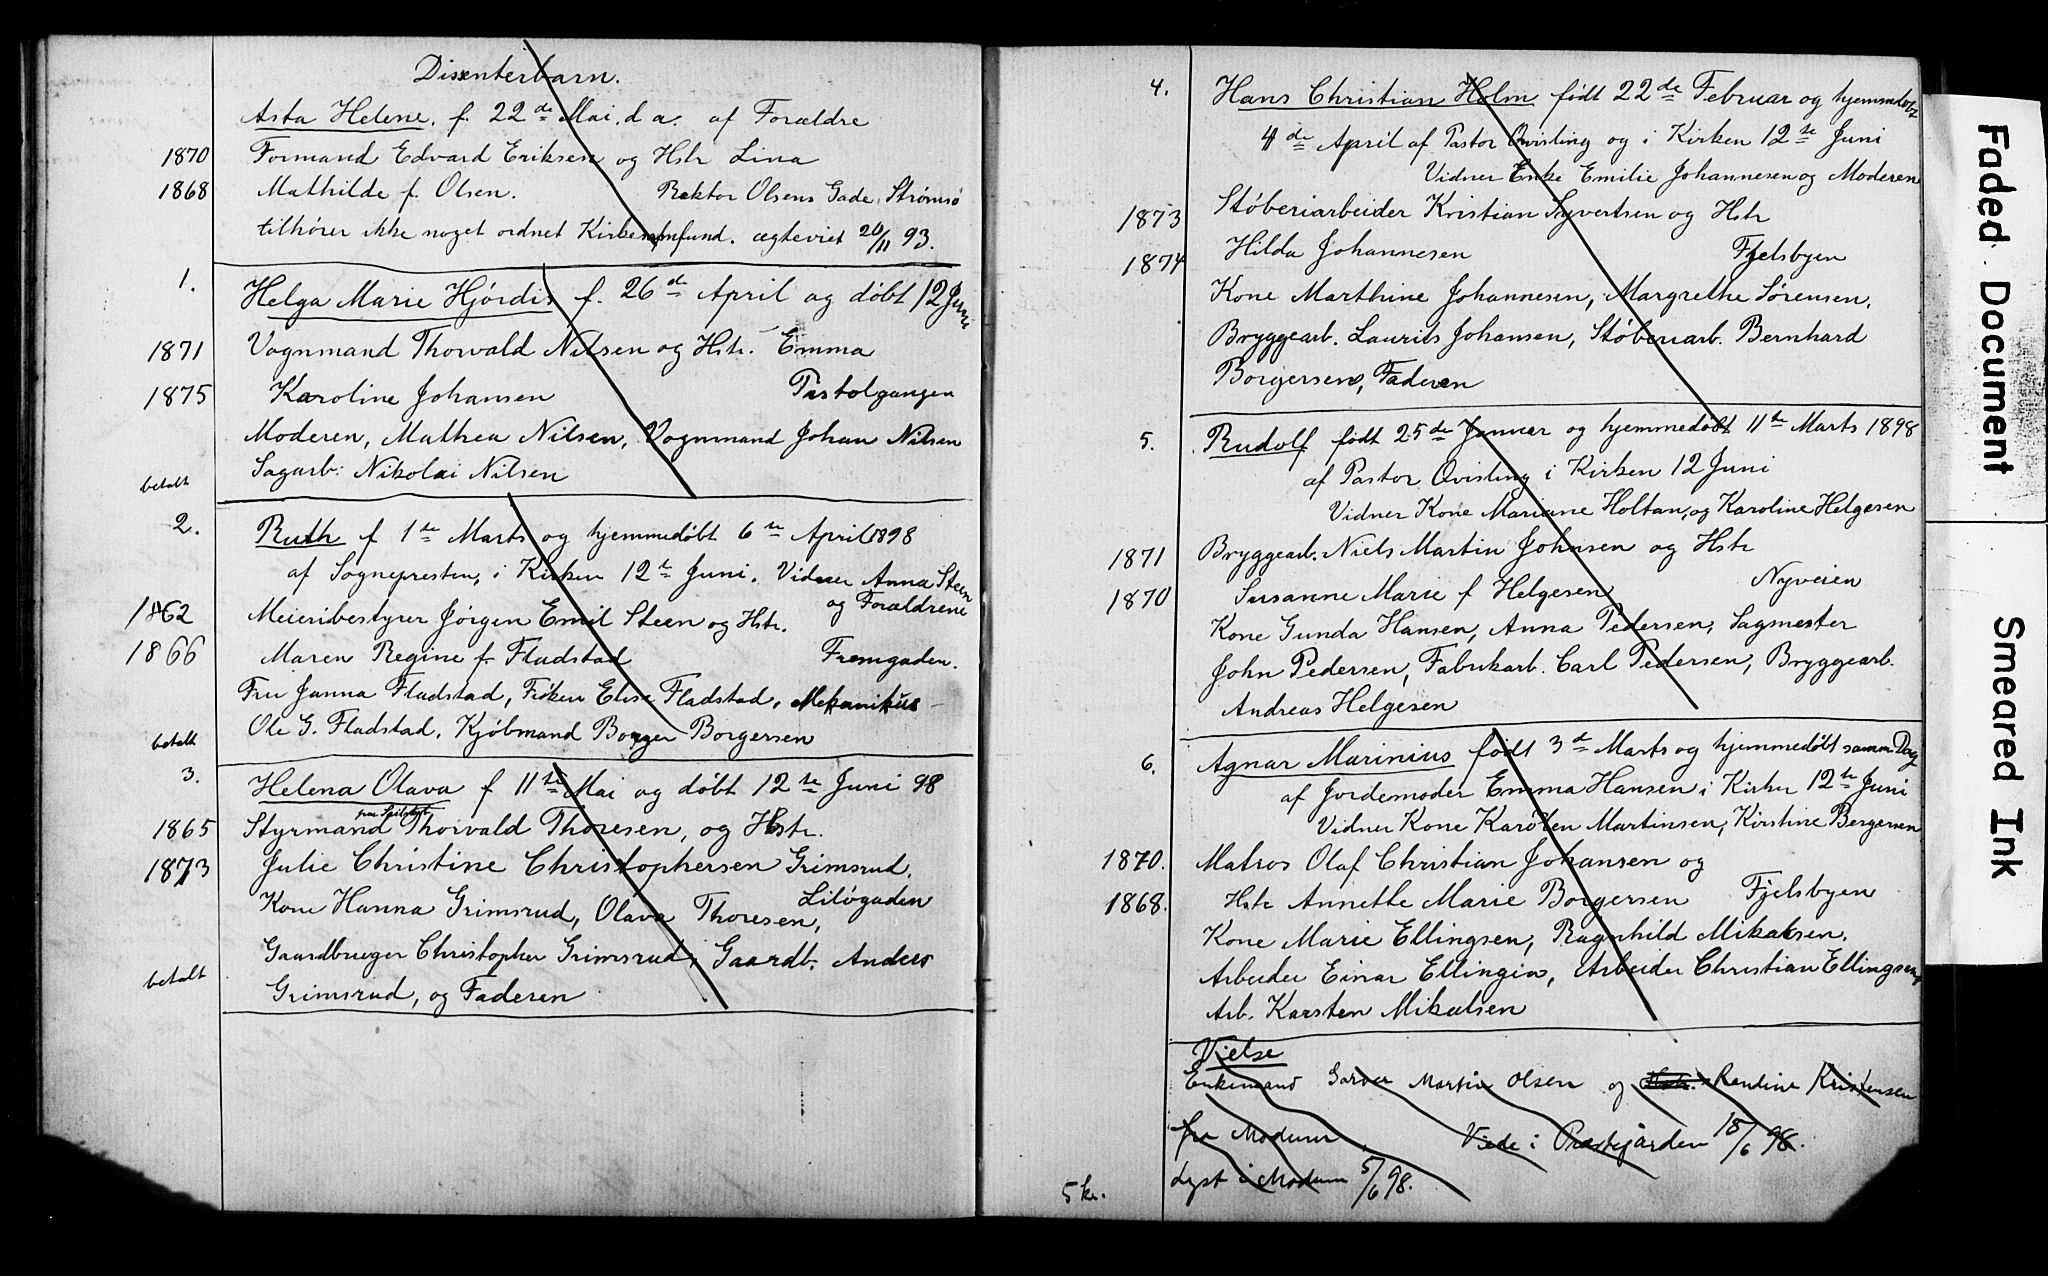 Dissenterbarn.
Asta Helene. f. 22de Mai. d a. af Forældre
1870 Formand Edvard Eriksen og Hstr Lina
1868 Mathilde f. Olsen. Rektor Olsens Gade, Strømsø
tilhører ikke noget ordnet Kirkesamfund. ægteviet 20/11 93.
1. Helga Marie Hjørdis f. 26de April og døbt 12 Juni
1871 Vognmand Thorvald Nilsen og Hstr. Emma
1875 Karoline Johansen Pistolgangen
Moderen, Mathea Nilsen, Vognmand Johan Nilsen
betalt Sagarb: Nikolai Nilsen
2. Ruth f 1te Marts og hjemmedøbt 6te April 1898
af Sognepresten, i Kirken 12te Juni. Vidner Anna Steen
og Forældrene
1862 Meieribestyrer Jörgen Emil Steen og Hstr.
1866 Maren Regine f. Fladstad Fremgaden.
Fru Janna Fladstad, Frøken Elise Fladstad, Mekanikus
betalt Ole G. Fladstad, Kjøbmand Borger Borgersen
3. Helena Olava f 11te Mai og døbt 12te Juni 98
1865 Styrmand Thorvald Thoresen, og Hstr.
1873 Julie Christine Christophersen Grimsrud.
Liløgaden
Kone Hanna Grimsrud, Olava Thoresen,
Gaardbruger Christopher Grimsrud, Gaardb. Anders
betalt Grimsrud, og Faderen
4. Hans Christian Holm født 22de Februar og hjemmedøbt
4de April af Pastor Qvisling og i Kirken 12te Juni
Vidner Enke Emilie Johannesen og Moderen
1873 Støberiarbeider Kristian Syvertsen og Hstr
1874 Hilda Johannesen Fjelsbyen
Kone Marthine Johannesen, Margrethe Sørensen.
Bryggearb. Laurits Johansen, Støberiarb. Bernhard
Borgersen, Faderen
5. Rudolf født 25de Januar og hjemmedøbt 11te Marts 1898
af Pastor Qvisling i Kirken 12 Juni
Vidner Kone Mariane Holtan, og Karoline Helgesen
1871 Bryggearb. Niels Martin Johnsen og Hstr
1870 Susanne Marie f Helgesen Nyveien
Kone Gunda Hansen, Anna Pedersen, Sagmester
John Pedersen, Fabrikarb. Carl Pedersen, Bryggearb.
Andreas Helgesen
6. Agnar Marinius født 3d Marts og hjemmedøbt samm. Dag
af Jordemoder Emma Hansen i Kirken 12te Juni
Vidner Kone Karen Martinsen, Kirstine Bergersen
1870. Matros Olaf Christian Johansen og
1868. Hstr Annette Marie Borgersen Fjelsbyen
Kone Marie Ellingsen, Ragnhild Mikalsen.
Arbeider Einar Ellingsen, Arbeider Christian Ellingsen,
Arb. Karsten Mikalsen
Vielse
Enkemand Garver Martin Olsen og Hstr. Rendine Kristensen
fra Modum, Viede i Præstegården 18/6 98.
5 kr. Lyst i Modum 5/6 98.
Faded Document
Smeared Ink